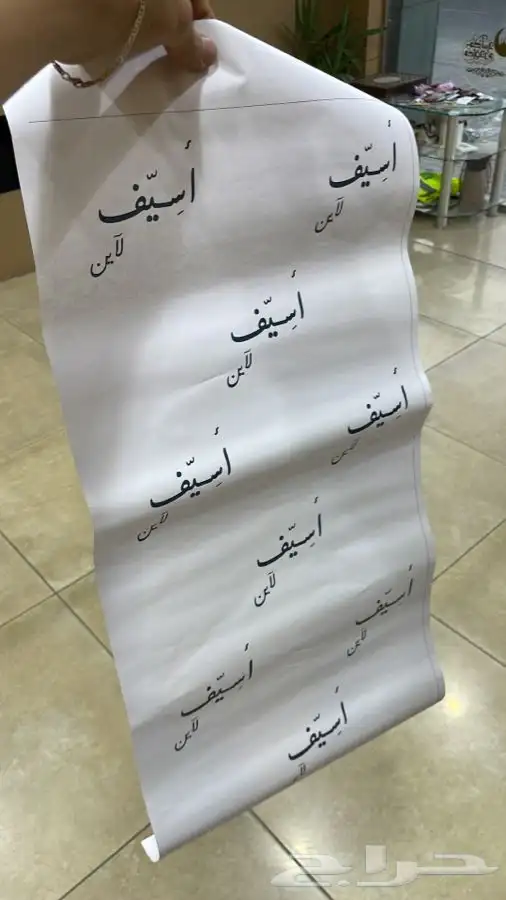 أَسِيّف
لآين
أَسِيّف
لآين
أَسِيّف
لآين
أَسِيّف
لآين
أَسِيّف
لآين
أَسِيّف
لآين
أَسِيّف
لآين
أَسِيّف
لآين
أَسِيّف
حراج